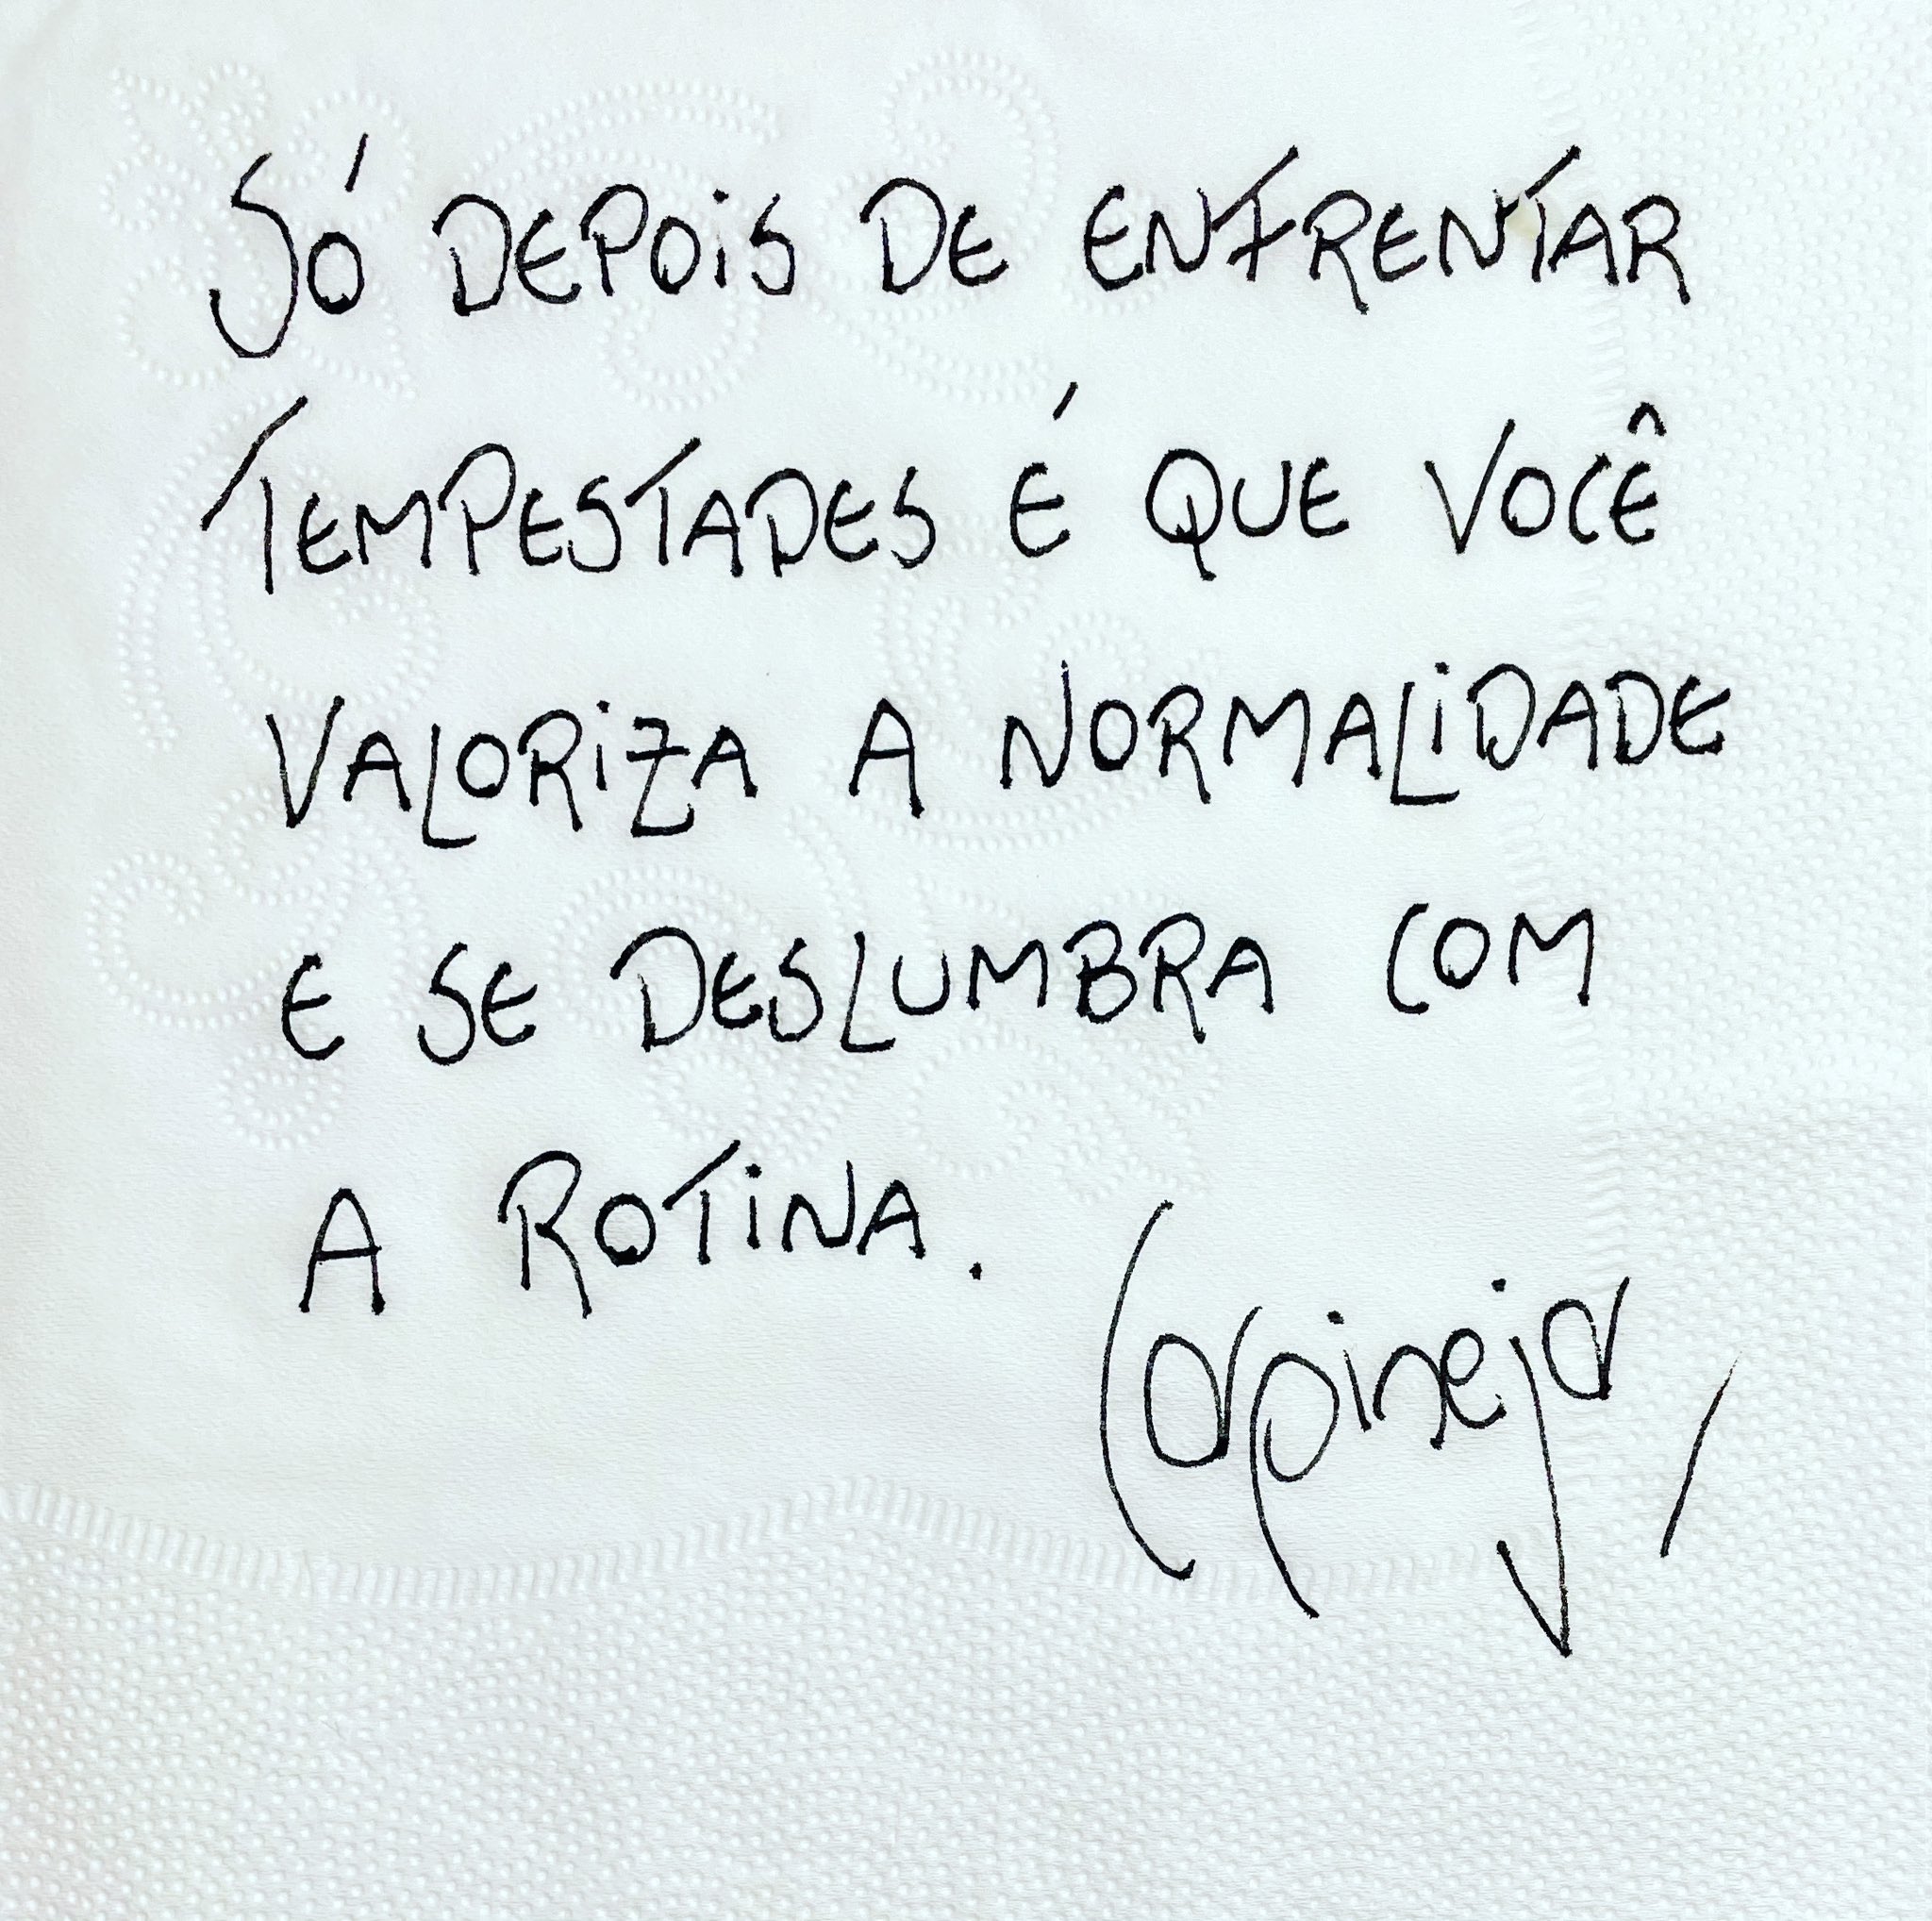 SÓ DEPOIS DE ENFRENTAR
TEMPESTADES É QUE VOCÊ
VALORIZA A NORMALIDADE
E SE DESLUMBRA COM
A ROTINA.
Carpinejar